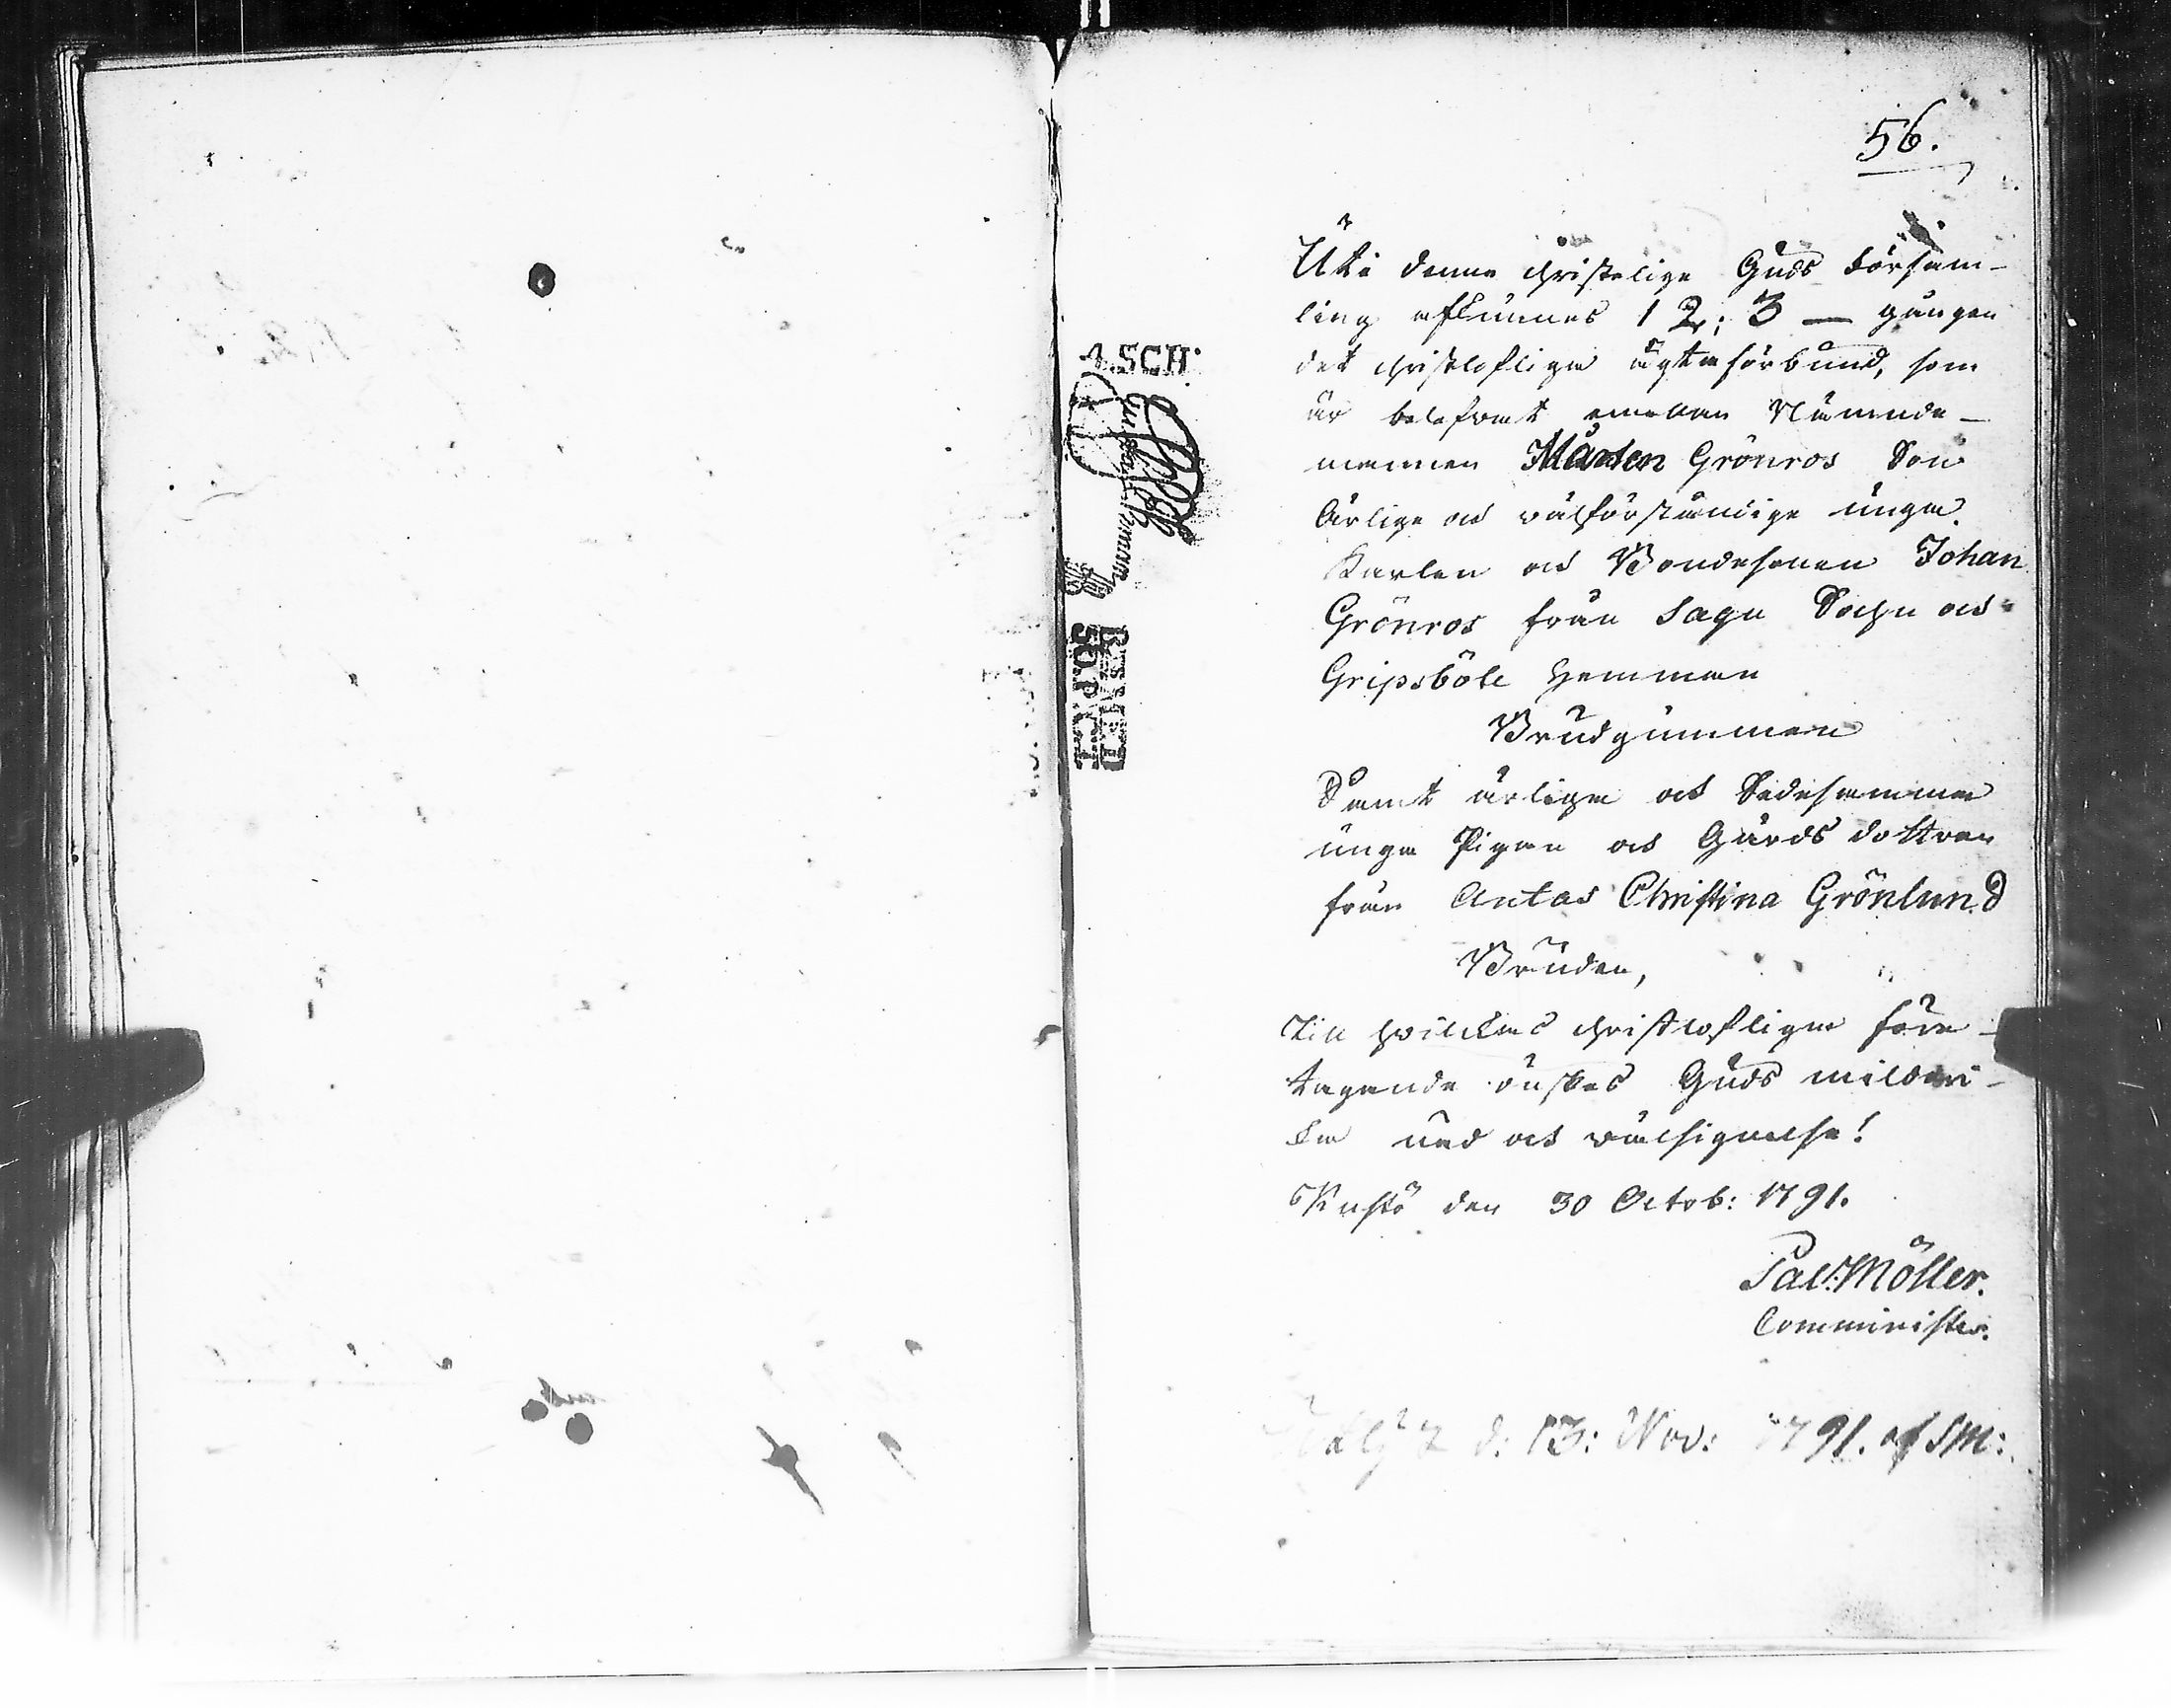 56.
Uti denna christelige Guds Försam-
ling afkunnes 1 2; 3 — gången
det christlofliga ägta förbund, som
är beleswat emellan Nämnde-
mannen Mårten Grönros Son
Ärlige och wälförståndige unga
Karlen och Bondesonen Johan
Grönros från Sagu Sochn och
Gripsböle hemman
Brudgummen
Samt ärliga och Sedesamma
unga Pigan och Gårds dottren
från Antas Christina Grönlund
Bruden,
Till hwilckas christlofliga före-
tagande önskes Guds mildri-
ka nåd och wälsignelse!
Kustö den 30 Octob: 1791.
Sal: Möller.
Comminister.
d: 13: Nov: 1791. af SM:
4 SCH.